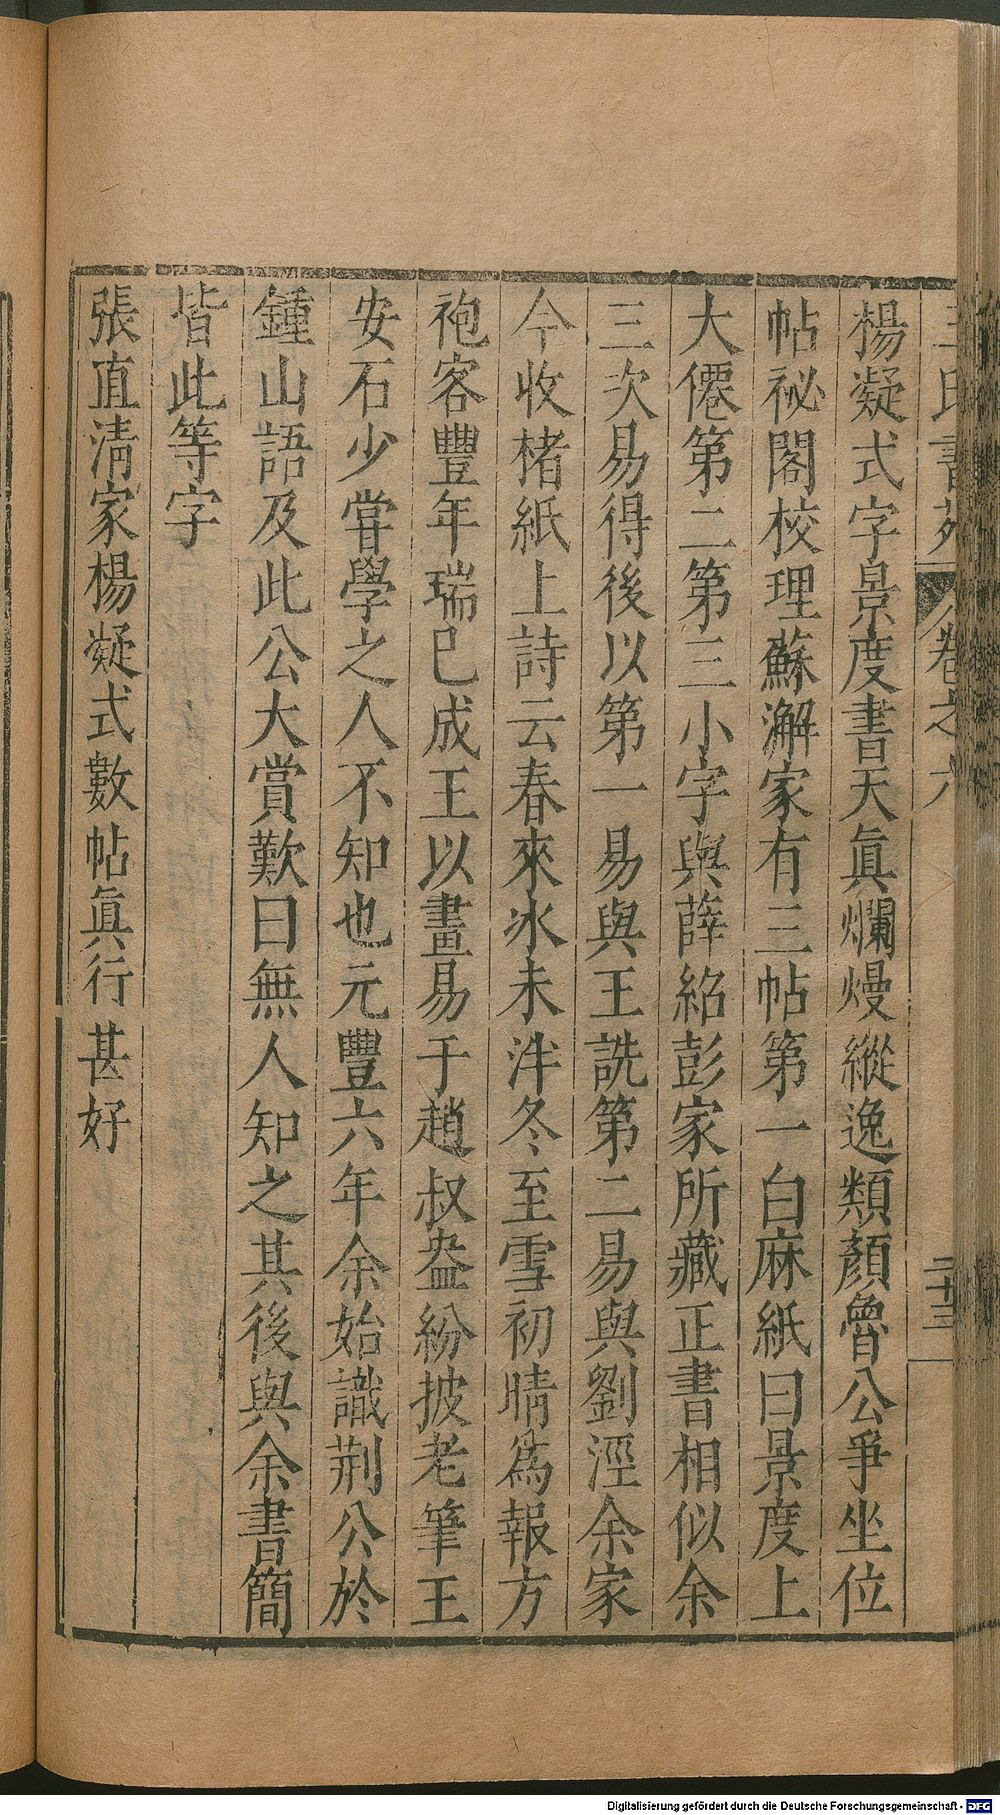 王氏書苑 卷之六 二十三
楊凝式字景度書天眞爛熳縱逸類顔魯公爭坐位
帖祕閣校理蘇澥家有三帖第一白麻紙曰景度上
大僊第二第三小字與薛紹彭家所藏正書相似余
三次易得後以第一易與王詵第二易與劉涇余家
今收楮紙上詩云春來冰未泮冬至雪初晴爲報方
袍客豐年瑞已成王以畫易于趙叔盎紛披老筆王
安石少甞學之人不知也元豐六年余始識荆公於
鍾山語及此公大賞歎曰無人知之其後與余書簡
皆此等字
張直淸家楊凝式數帖眞行甚好
Digitalisierung gefördert durch die Deutsche Forschungsgemeinschaft - DFG